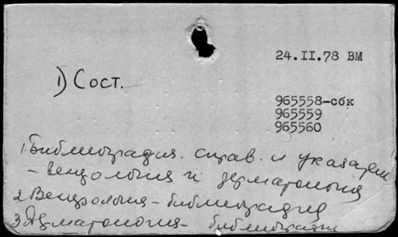 24.II.78 ВМ
1) Сост.
965558-сбк
965559
965560
1. Библиография. справ. и указатели
- венерология и дерматология
2 Венерология - библиография
3 Дерматология - библиография